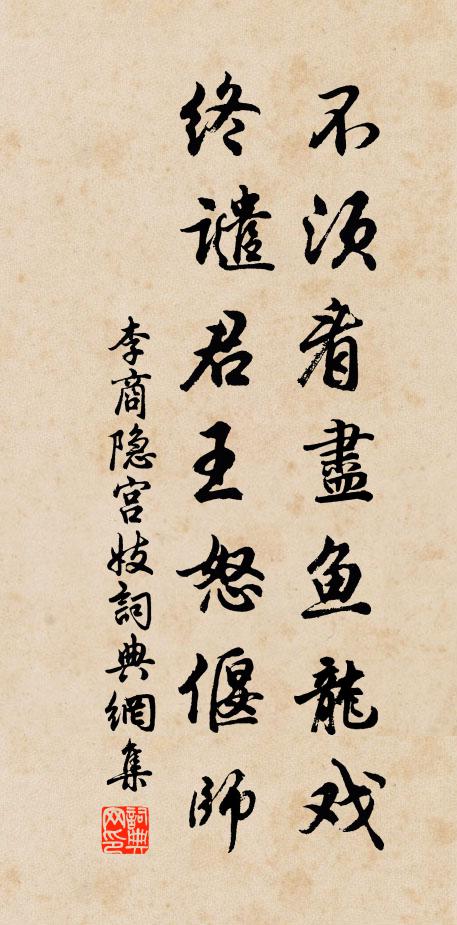 不须看盡鱼龍戏
终谴君王怒偃師
李商隐宫妓詞典網集
詞典网印